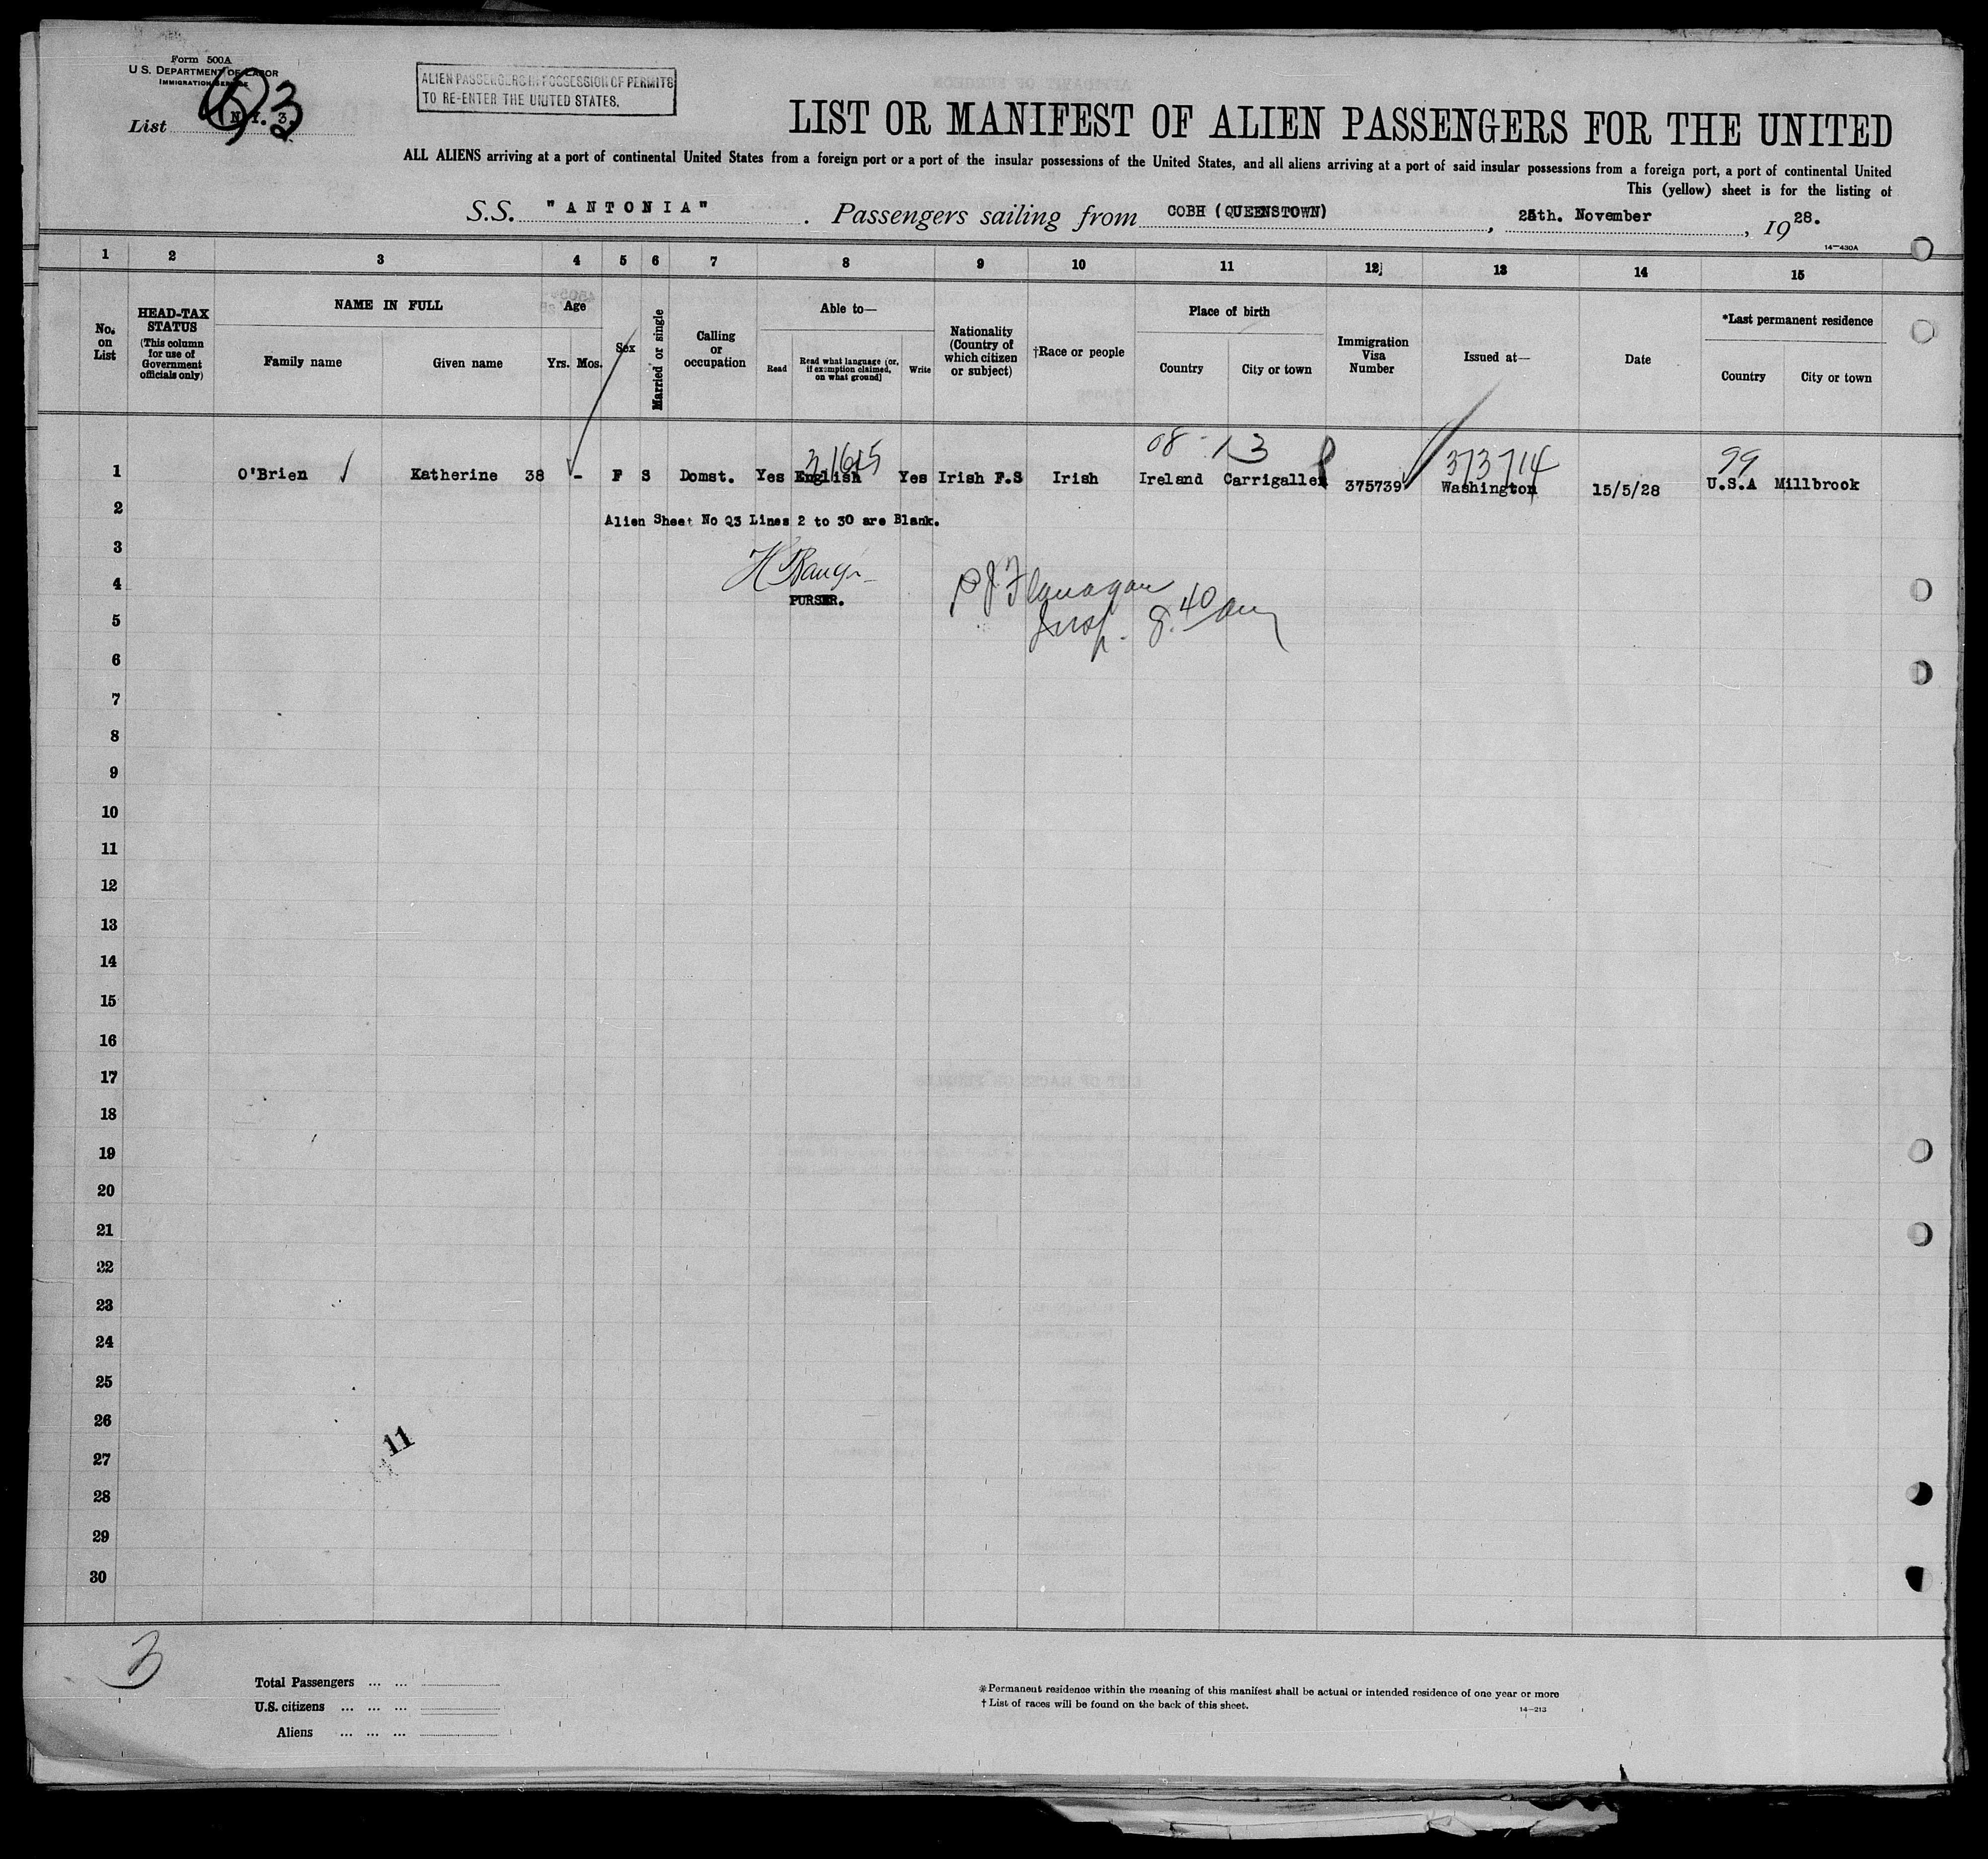 Form 500A
U. S. DEPARTMENT OF LABOR
IMMIGRATION SERVICE
List 3
ALIEN PASSENGERS IN POSSESSION OF PERMITS
TO RE-ENTER THE UNITED STATES.
LIST OR MANIFEST OF ALIEN PASSENGERS FOR THE UNITED
ALL ALIENS arriving at a port of continental United States from a foreign port or a port of the insular possessions of the United States, and all aliens arriving at a port of said insular possessions from a foreign port, a port of continental United
This (yellow) sheet is for the listing of
S.S. "ANTONIA". Passengers sailing from COBH (QUEENSTOWN), 25th. November, 1928.
14-430A
1 2 3 4 5 6 7 8 9 10 11 12 13 14 15
No. on List
HEAD-TAX STATUS (This column for use of Government officials only)
NAME IN FULL
Family name Given name
Age
Yrs. Mos.
Sex
Married or single
Calling or occupation
Able to—
Read Read what language [or, if exemption claimed, on what ground] Write
Nationality (Country of which citizen or subject)
†Race or people
Place of birth
Country City or town
Immigration Visa Number
Issued at—
Date
*Last permanent residence
Country City or town
08 - 13 373714 99
1 O'Brien Katherine 38 - F S Domst. Yes English Yes Irish F.S Irish Ireland Carrigallen 375739 Washington 15/5/28 U.S.A Millbrook
2 Alien Sheet No Q3 Lines 2 to 30 are Blank.
3
4
PURSER.
P J Flanagan
5
Insp. 8.40 am
6
7
8
9
10
11
12
13
14
15
16
17
18
19
20
21
22
23
24
25
26
11
27
28
29
30
3
Total Passengers ... ...
U.S. citizens ... ... ...
Aliens ... ... ...
*Permanent residence within the meaning of this manifest shall be actual or intended residence of one year or more
†List of races will be found on the back of this sheet.
14-213